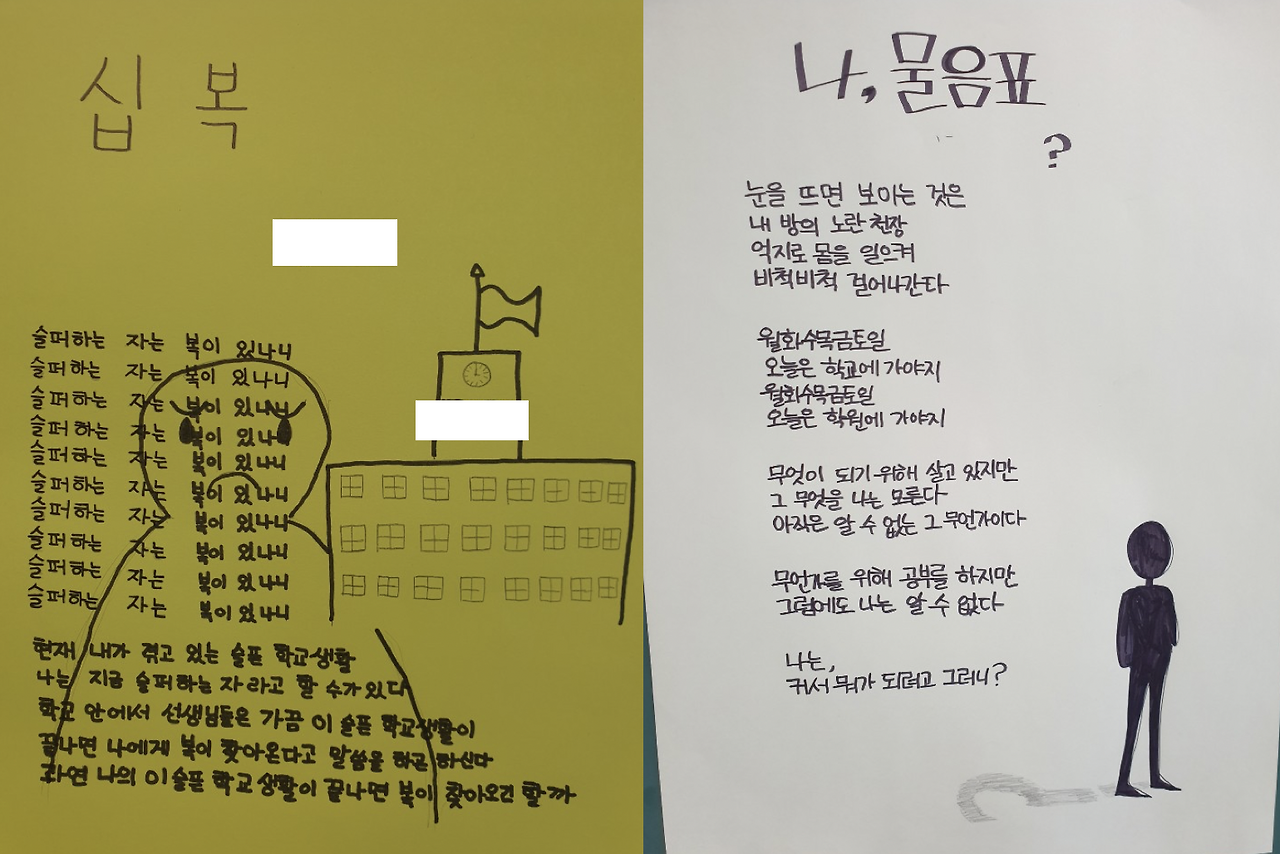 십 복
슬퍼하는 자는 복이 있나니
슬퍼하는 자는 복이 있나니
슬퍼하는 자는 복이 있나니
슬퍼하는 자는 복이 있나니
슬퍼하는 자는 복이 있나니
슬퍼하는 자는 복이 있나니
슬퍼하는 자는 복이 있나니
슬퍼하는 자는 복이 있나니
슬퍼하는 자는 복이 있나니
슬퍼하는 자는 복이 있나니
현재 내가 겪고 있는 슬픈 학교생활
나는 지금 슬퍼하는 자라고 할 수가 있다
학교 안에서 선생님들은 가끔 이 슬픈 학교생활이
끝나면 나에게 복이 찾아온다고 말씀을 하곤 하신다
과연 나의 이 슬픈 학교생활이 끝나면 복이 찾아오긴 할까
나, 물음표
?
눈을 뜨면 보이는 것은
내 방의 노란 천장
억지로 몸을 일으켜
비척비척 걸어나간다
월화수목금토일
오늘은 학교에 가야지
월화수목금토일
오늘은 학원에 가야지
무엇이 되기 위해 살고 있지만
그 무엇을 나는 모른다
아직은 알 수 없는 그 무언가이다
무언가를 위해 공부를 하지만
그럼에도 나는 알 수 없다
나는,
커서 뭐가 되려고 그러니?